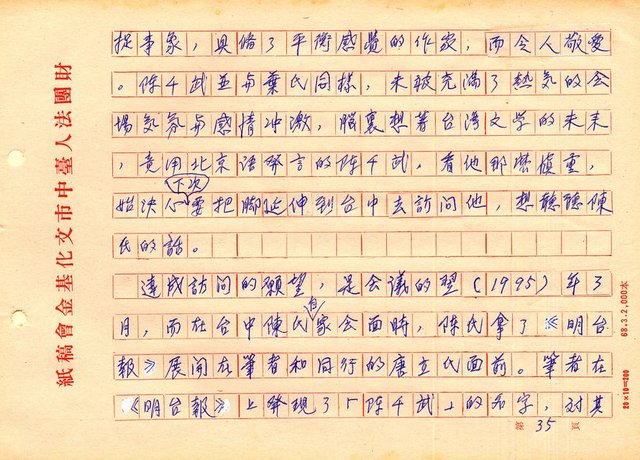 捉事象，具備了平衡感覺的作家，而令人敬愛
。陈千武並与葉氏同樣，未被充滿了熱気的会
場気氛与感情冲激，腦裏想著台湾文学的未来
，竟用北京语発言的陈千武。看他那麼慎重，
始决心下次要把脚延伸到台中去訪问他，想聽聽陳
氏的話。
達成訪问的願望，是会議的翌（1995）年3
月，而在台中陳氏自家会面時，陈氏拿了《明台
報》展開在筆者和同行的唐立氏面前。筆者在
《明台報》上発現了「陈千武」的名字，对其
第35頁
財團法人臺中市文化基金會稿紙
68.3.2,000本
20×10=200